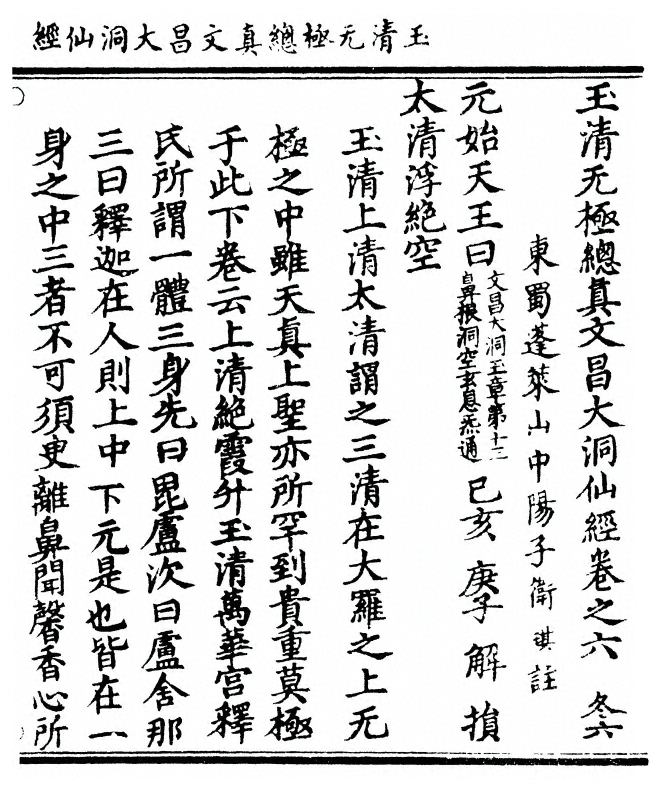 玉清无極總真文昌大洞仙經
玉清无極總真文昌大洞仙經卷之六 冬六
東蜀蓬萊山中陽子衛琪註
元始天王曰文昌大洞玉章第十三鼻根洞空玄息炁通 己亥 庚子 解損
太清浮絶空
玉清上清太清謂之三清在大羅之上无
極之中雖天真上聖亦所罕到貴重莫極
于此下卷云上清絶霞升玉清萬華宫釋
氏所謂一體三身先曰毘盧次曰盧舍那
三曰釋迦在人則上中下元是也皆在一
身之中三者不可須臾離鼻聞馨香心所